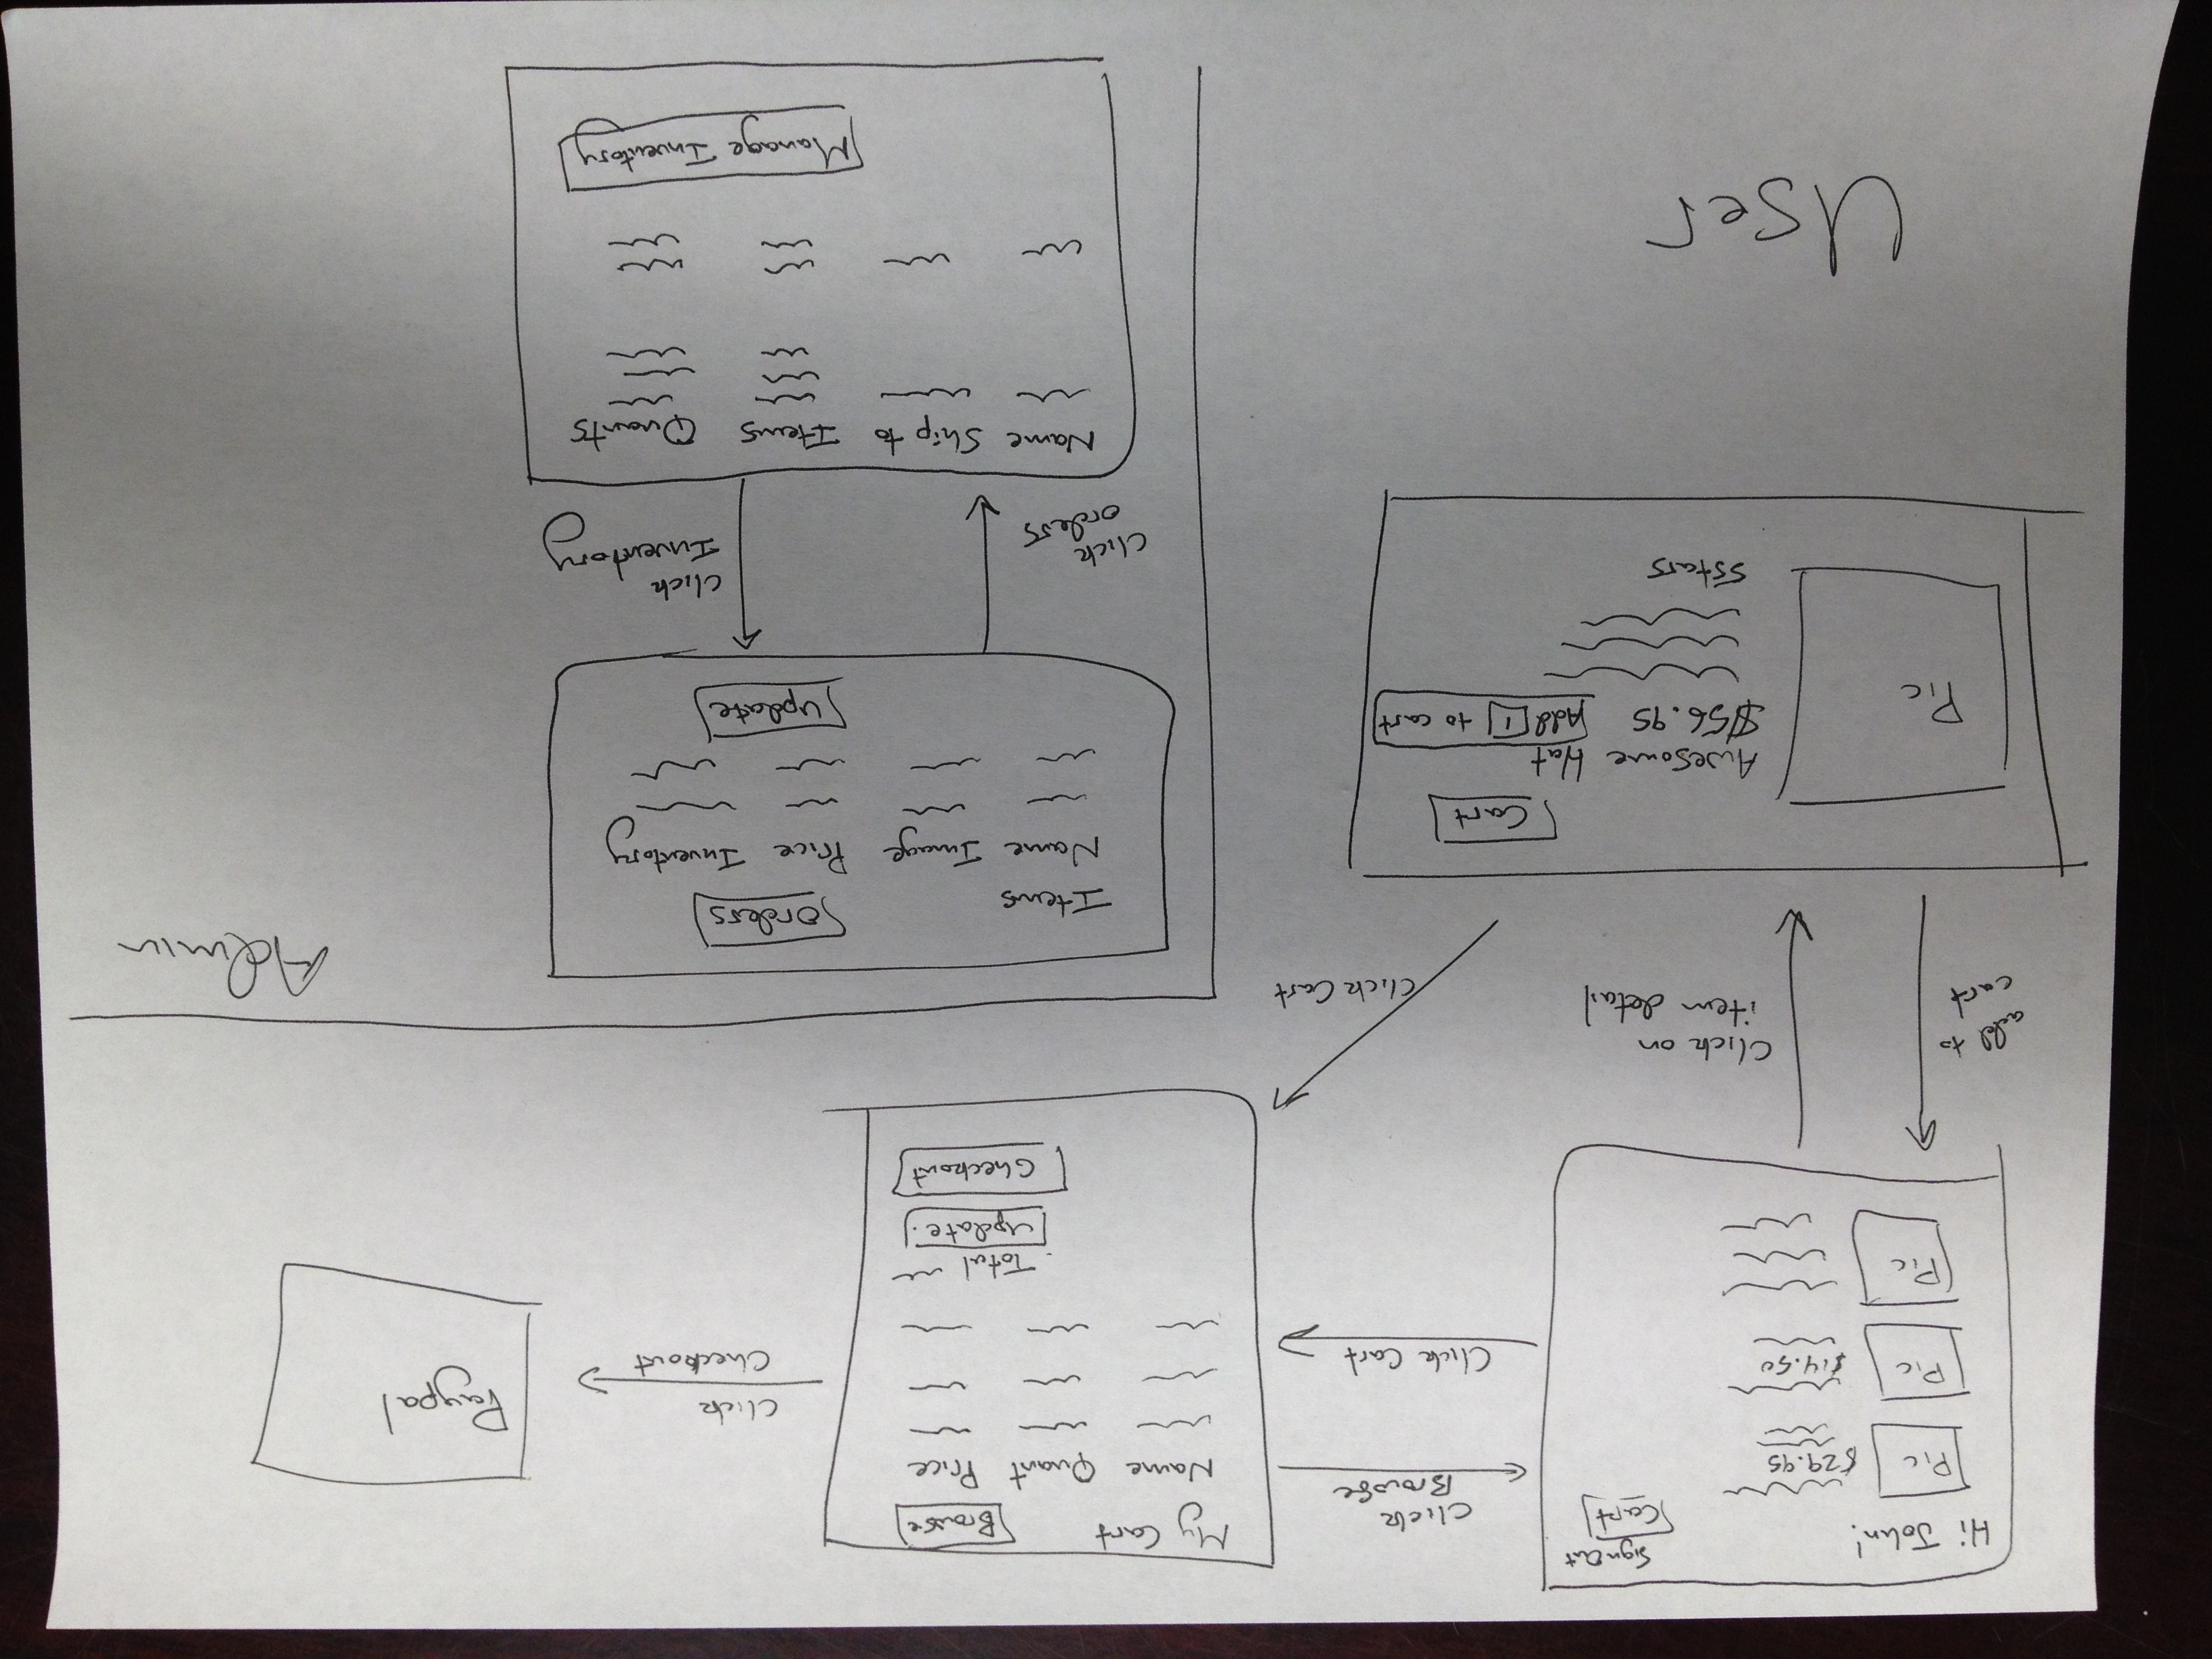 Hi John!
Sign Out
Cart
Pic
$29.95
Pic
$14.50
Pic
Click
Browse
Click Cart
My Cart
Browse
Name Quant Price
Total
Update
Checkout
Click
Checkout
Paypal
Click on
item detail
add to
cart
Click Cart
Cart
Pic
Awesome Hat
$56.95
Add 1 to cart
5 stars
User
Admin
Items
Orders
Name Image Price Inventory
Update
Click
orders
Click
Inventory
Name Ship to Items Quants
Manage Inventory